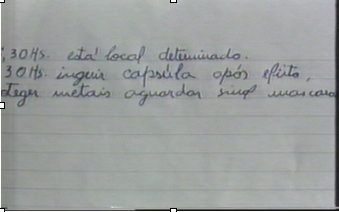 ,30Hs. está local determinado.
30Hs. inguir capsúla após efeito,
teger metais aguardar sinal mascara